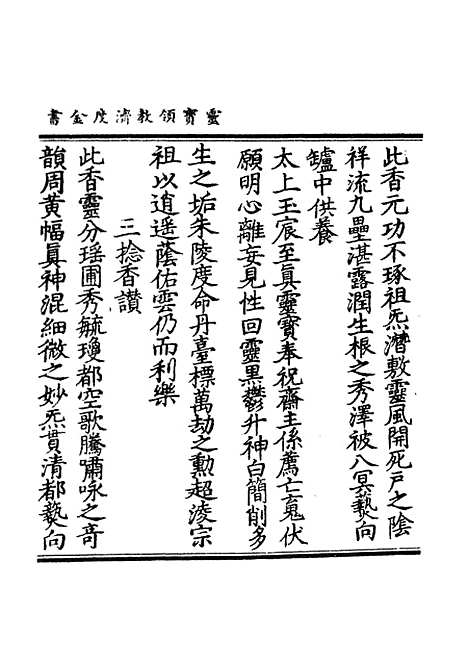 靈寳領教濟度金書
此香元功不琢祖炁潛敷靈風開死戸之陰
祥流九壘湛露潤生根之秀澤被八冥爇向
罏中供養
太上玉宸至眞靈寳奉祝齋主係薦亡䰟伏
願明心離妄見性回靈黒鬱升神白簡削多
生之垢朱陵度命丹臺標萬劫之勲超淩宗
祖以逍遥蔭佑雲仍而利樂
三捻香讃
此香靈分瑶圃秀毓瓊都空歌騰嘯咏之音
韻周黄幅眞神混細微之妙炁貫清都爇向